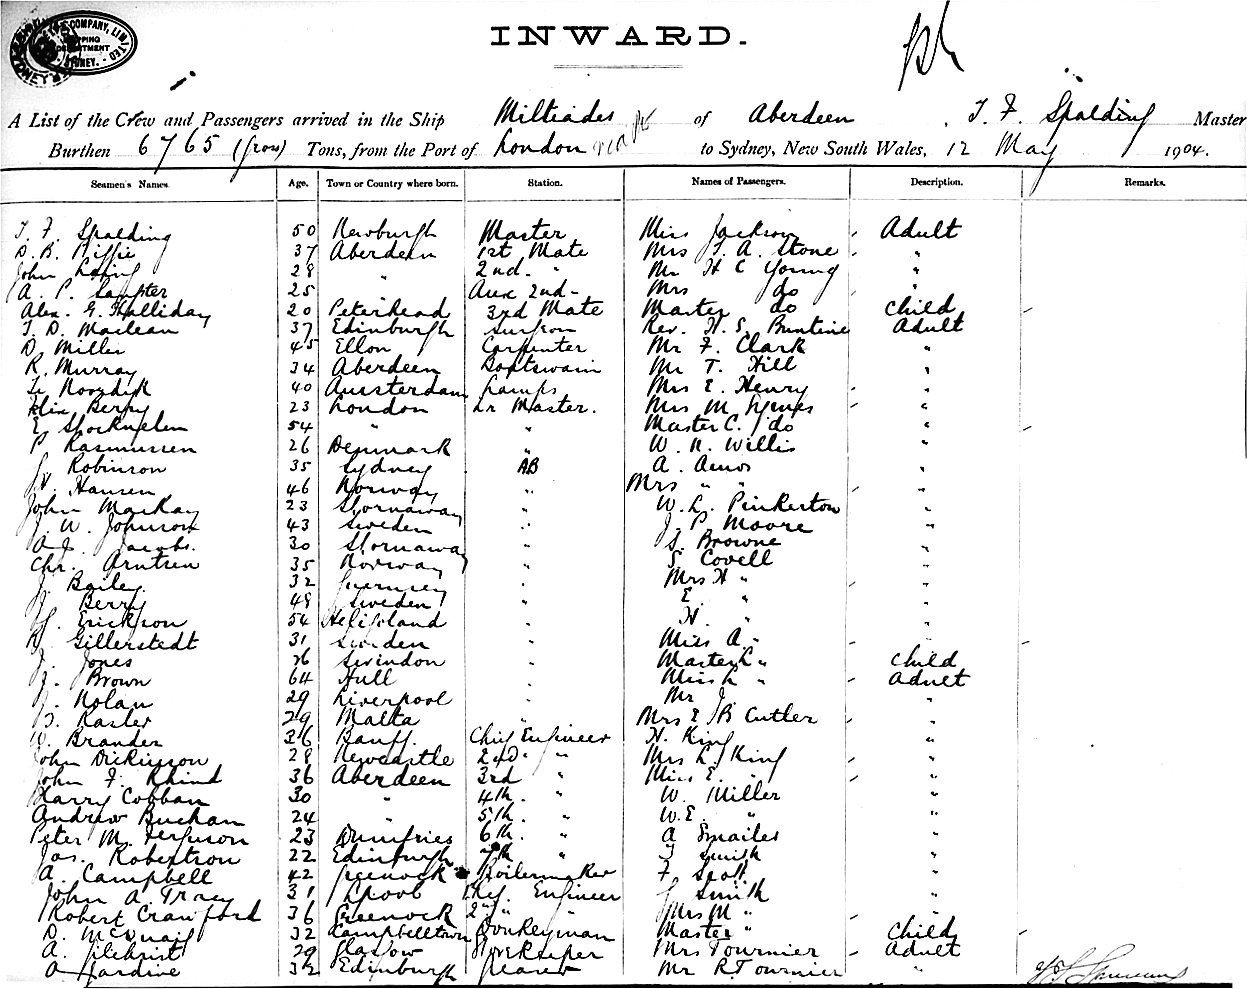 COMPANY, LIMITED
SHIPPING
DEPARTMENT
SYDNEY.
INWARD.
A List of the Crew and Passengers arrived in the Ship Miltiades of Aberdeen, T. F. Spalding Master
Burthen 6765 (gross) Tons, from the Port of London to Sydney, New South Wales, 12 May 1904.
Seamen's Names. Age. Town or Country where born. Station. Names of Passengers. Description. Remarks.
T. F. Spalding 50 Newburgh Master Miss Jackson Adult
D. B. 37 Aberdeen 1st Mate Mrs T. A. Stone "
John 28 " 2nd. " Mr H C Young "
A. P. 25 Aux 2nd - Mrs do "
Alex. G. Halliday 20 Peterhead 3rd Mate Master do Child
T. D. Maclean 37 Edinburgh Surgeon Rev. H. E. Buntine Adult
D. Miller 45 Ellon Carpenter Mr F. Clark "
R. Murray 34 Aberdeen Boatswain Mr T. Hill "
40 Amsterdam Lamps Mrs E. Henry "
Berry 23 London Qr Master. Mrs M "
E. 54 " " Master C. do "
P. Rasmussen 26 Denmark " W. N. Willis "
Robinson 35 Sydney AB A. Amos "
Hansen 46 Norway " Mrs " "
John MacKay 23 Stornaway " W. L. Pinkerton "
J. W. Johnson 43 Sweden " J. P. Moore "
A. J. Jacobs. 30 Stornaway " S. Browne "
Chr. Arntsen 35 Norway " S. Covell "
J. Bailey. 32 Guernsey " Mrs H " "
J. Berry 48 Sweden " E. " "
Erickson 54 Heligoland " H. " "
Gillerstedt 31 Sweden " Miss A " "
J. Jones 26 Swindon " Master L " Child
J. Brown 64 Hull " Miss L " Adult
J. Nolan 29 Liverpool " Mr J "
29 Malta " Mrs E B Cutler "
W. Brander 36 Banff. Chief Engineer H. King "
John Dickinson 28 Newcastle 2nd " Mrs L. King "
John F. Rhind 36 Aberdeen 3rd " Miss E. " "
Harry Cobban 30 " 4th " W. Miller "
Andrew Buchan 24 " 5th " W. E. " "
Peter M. Ferguson 23 Dumfries 6th " A Smailes "
Jas. Robertson 22 Edinburgh 7th " Smith "
A. Campbell 42 Greenock Boilermaker F. Scott "
John A. Tracy 31 Lpool Ref. Engineer Smith "
Robert Crawford 36 Greenock 2nd " Mrs M " "
D. 32 Campbelltown Donkeyman Master " Child
A. Gilchrist 29 Glasgow Storekeeper Mrs Tournier Adult
A Jardine 32 Edinburgh Greaser Mr R. Tournier "